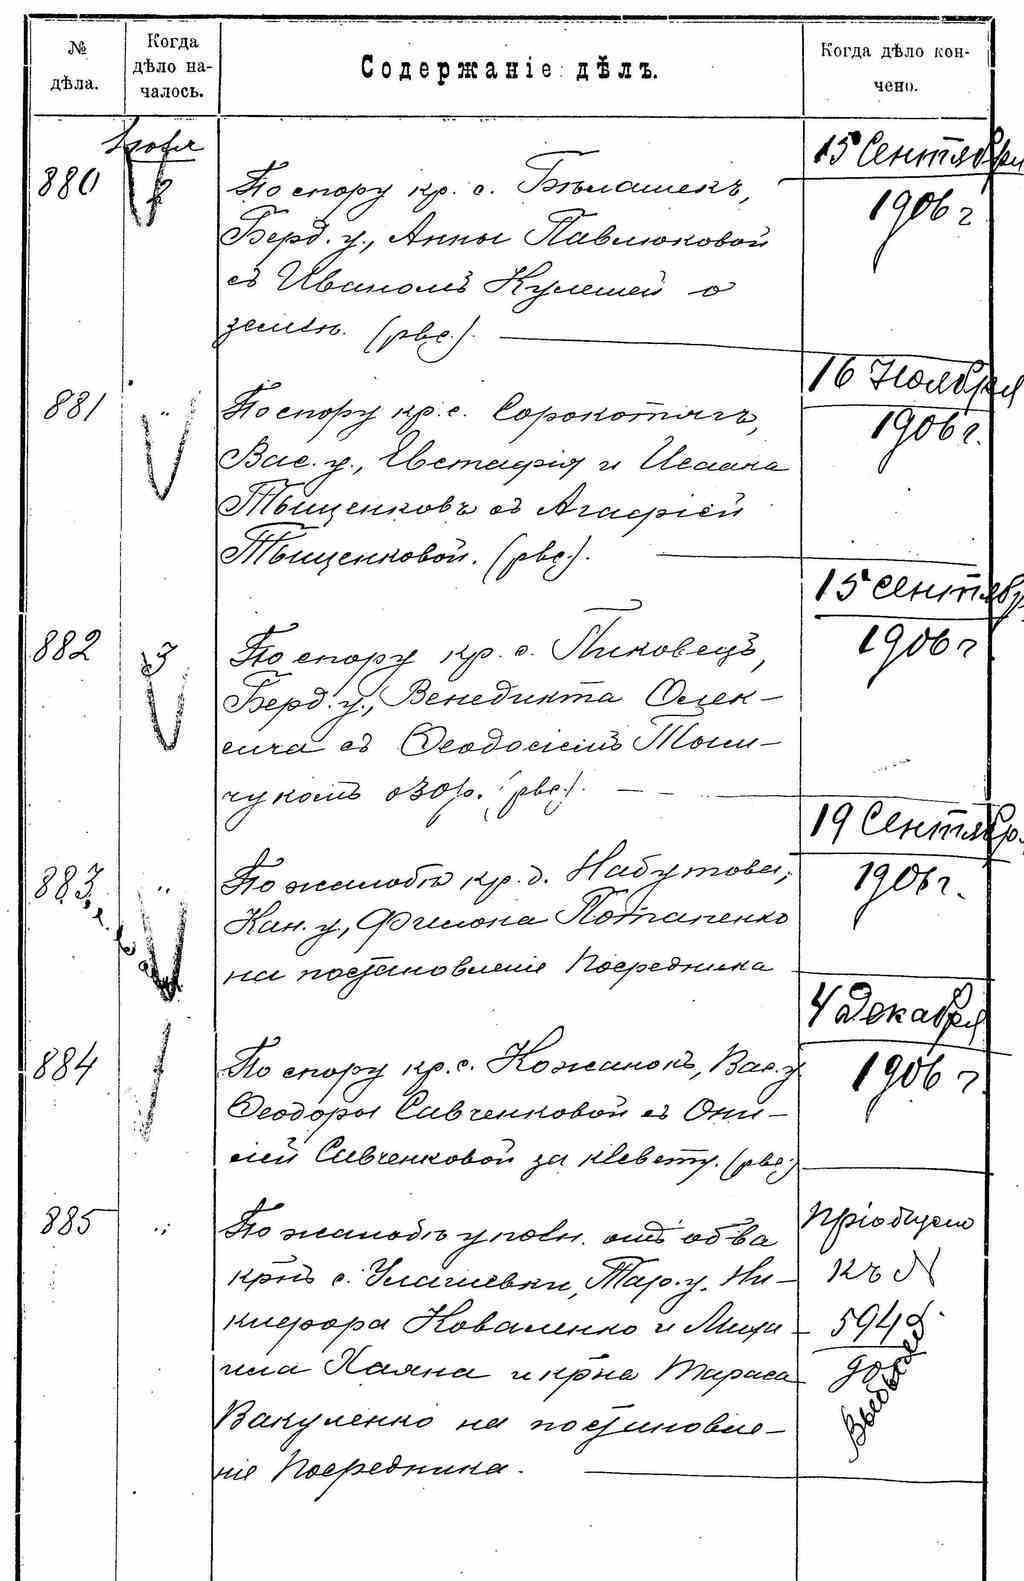 №
дѣла.
Когда
дѣло на-
чалось.
Содержаніе дѣлъ.
Когда дѣло кон-
чено.
880
2
По спору кр. с. Бѣлашекъ,
Берд. у., Анны Павлюковой
съ Иваномъ Кулешей о
землѣ. (рвс.).
15 Сентября
1906 г
881
"
По спору кр. с. Сорокотягъ,
Вас. у., Евстафія и Исаака
Тыщенковъ съ Агафіей
Тыщенковой. (рвс.).
16 Ноября
1906 г.
882
3
По спору кр. с. Пиковецъ,
Берд. у., Венедикта Олек-
сича съ Ѳеодосіемъ Томи-
чукомъ о 30 р. (рвс.).
15 Сентябр
1906 г
883
"
По жалобѣ кр. д. Набутова,
Кан. у., Филона Потапенко
на постановленіе Посредника
19 Сентябр.
1906 г.
884
По спору кр. с. Кожанокъ, Вас. у
Ѳеодоры Савченковой съ Они-
сіей Савченковой за клевету. (рвс.)
4 Декабря
1906 г
885
"
По жалобѣ уполн. отъ об-ва
кр-нъ с. Улашевки, Тар. у. Ни-
кифора Коваленко и Миха-
ила Хаяна и кр-на Тараса
Вакуленко на постановле-
ніе Посредника.
Пріобщено
къ N
594